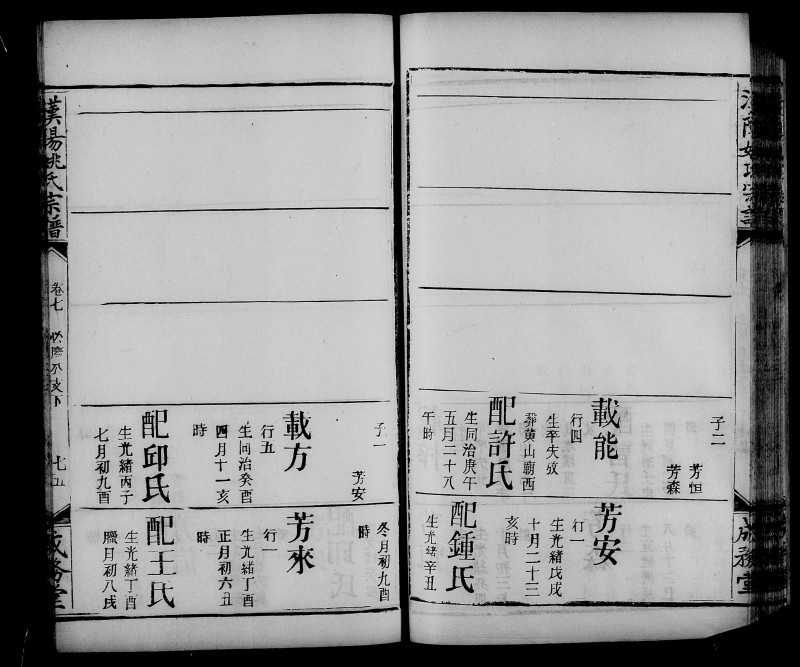 子二
芳恒
芳森
載能
行四
生卒失攷
葬黄山廟西
配許氏
生同治庚午
五月二十八
午時
芳安
行一
生光緒戊戌
十月二十三
亥時
配鍾氏
生光緒辛丑
冬月初九酉
時
子一
芳安
載方
行五
生同治癸酉
四月十一亥
時
配邱氏
生光緒丙子
七月初九酉
芳來
行一
生光緒丁酉
正月初六丑
時
配王氏
生光緒丁酉
臘月初八戌
漢陽姚氏宗譜
卷七
七五
成務堂